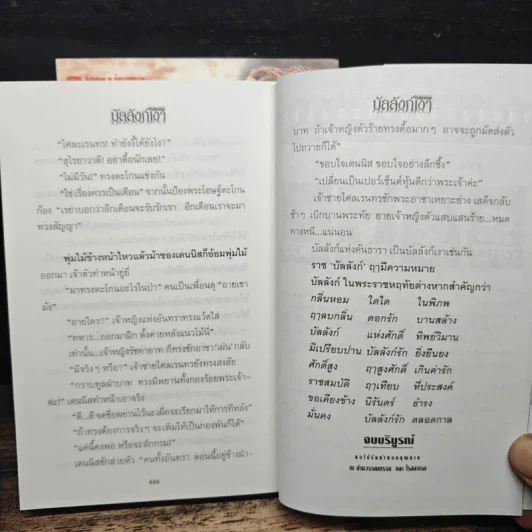 บัลลังก์เงา
“โคลเรนทร! ทำยังงี้ได้ยังไง?”
“สุไรยาวาตี! อย่าดื้อนักเลย!”
“ไม่มีวัน!” ทรงตะโกนแข่งกัน
“ใช่ เรื่องควรเป็นเดือน” จากนั้นป้องพระโอษฐ์ตะโกน
ก้อง “เรย่าบอกว่าอีกเดือนจะรับรักเรา อีกเดือนเราจะมา
ทวงสัญญา”
พุ่มไม้ข้างหน้าไหวแล้วม้าของเดนนิสก็อ้อมพุ่มไม้
ออกมา เจ้าตัวทำหน้ายู่ยี่
“มาทรงตะโกนอะไรในป่า” คนเป็นเพื่อนดุ “อายเขา
มั่ง”
“อายใคร?” เจ้าหญิงแห่งยันทราทรงแว้ดใส่
“ทหาร...ออกมาฝึก ตั้งค่ายหลังแนวไม้นี่”
เท่านั้น...เจ้าหญิงรัชทายาท ก็ทรงชักอาชา ‘เผ่น’ กลับ
“มีจริงๆ หรือ?” เจ้าชายโคลเรนทรยังทรงสงสัย
“กราบทูลฝ่าบาท ทรงมีพยานทั้งกองร้อยพระเจ้า-
ค่ะ!” เดนนิสทำหน้าเอาจริง
“ดี...ดี จดชื่อพยานไว้นะ เผื่อจะเรียกมาให้การทีหลัง”
“ถ้าทรงต้องการจริงๆ จะเพิ่มให้เป็นกองพันก็ได้”
“แค่นี้คงพอ หรือจะสักกรม!”
เดนนิสชักส่ายหัว “คนทั้งยันทรา ตอนนี้อยู่ข้างฝ่า-
บัลลังก์เงา
บาท ถ้าเจ้าหญิงตัวร้ายทรงดื้อมากๆ อาจจะถูกมัดส่งตัว
ไปถวายก็ได้”
“ขอบใจเดนนิส ขอบใจอย่างลึกซึ้ง”
“เปลี่ยนเป็นเปอร์เซ็นต์หุ้นดีกว่าพระเจ้าค่ะ”
เจ้าชายโคลเรนทรชักพระอาชาเหยาะย่าง เสด็จกลับ
ช้าๆ เบิกบานพระทัย ยายเจ้าหญิงตัวแสบแสนร้าย...หมด
ทางหนี...แน่นอน
บัลลังก์แห่งคันธารา เป็นบัลลังก์เงาเช่นกัน
ราช ‘บัลลังก์’ ฤๅมีความหมาย
บัลลังก์ ในพระราชหฤทัยต่างหากสำคัญกว่า
กลิ่นหอม ใดใด ในพิภพ
ฤๅลบกลิ่น ดอกรัก บานสล้าง
บัลลังก์ แห่งศักดิ์ ทิพย์วิมาน
มิเปรียบปาน บัลลังก์รัก ยิ่งยืนยง
ศักดิ์สูง ฤๅสูงศักดิ์ เกินค่ารัก
ราชสมบัติ ฤๅเทียบ ที่ประสงค์
ขอเคียงข้าง นิรันดร์ ธำรง
มั่นคง บัลลังก์รัก ตลอดกาล
จบบริบูรณ์
๘๘๘